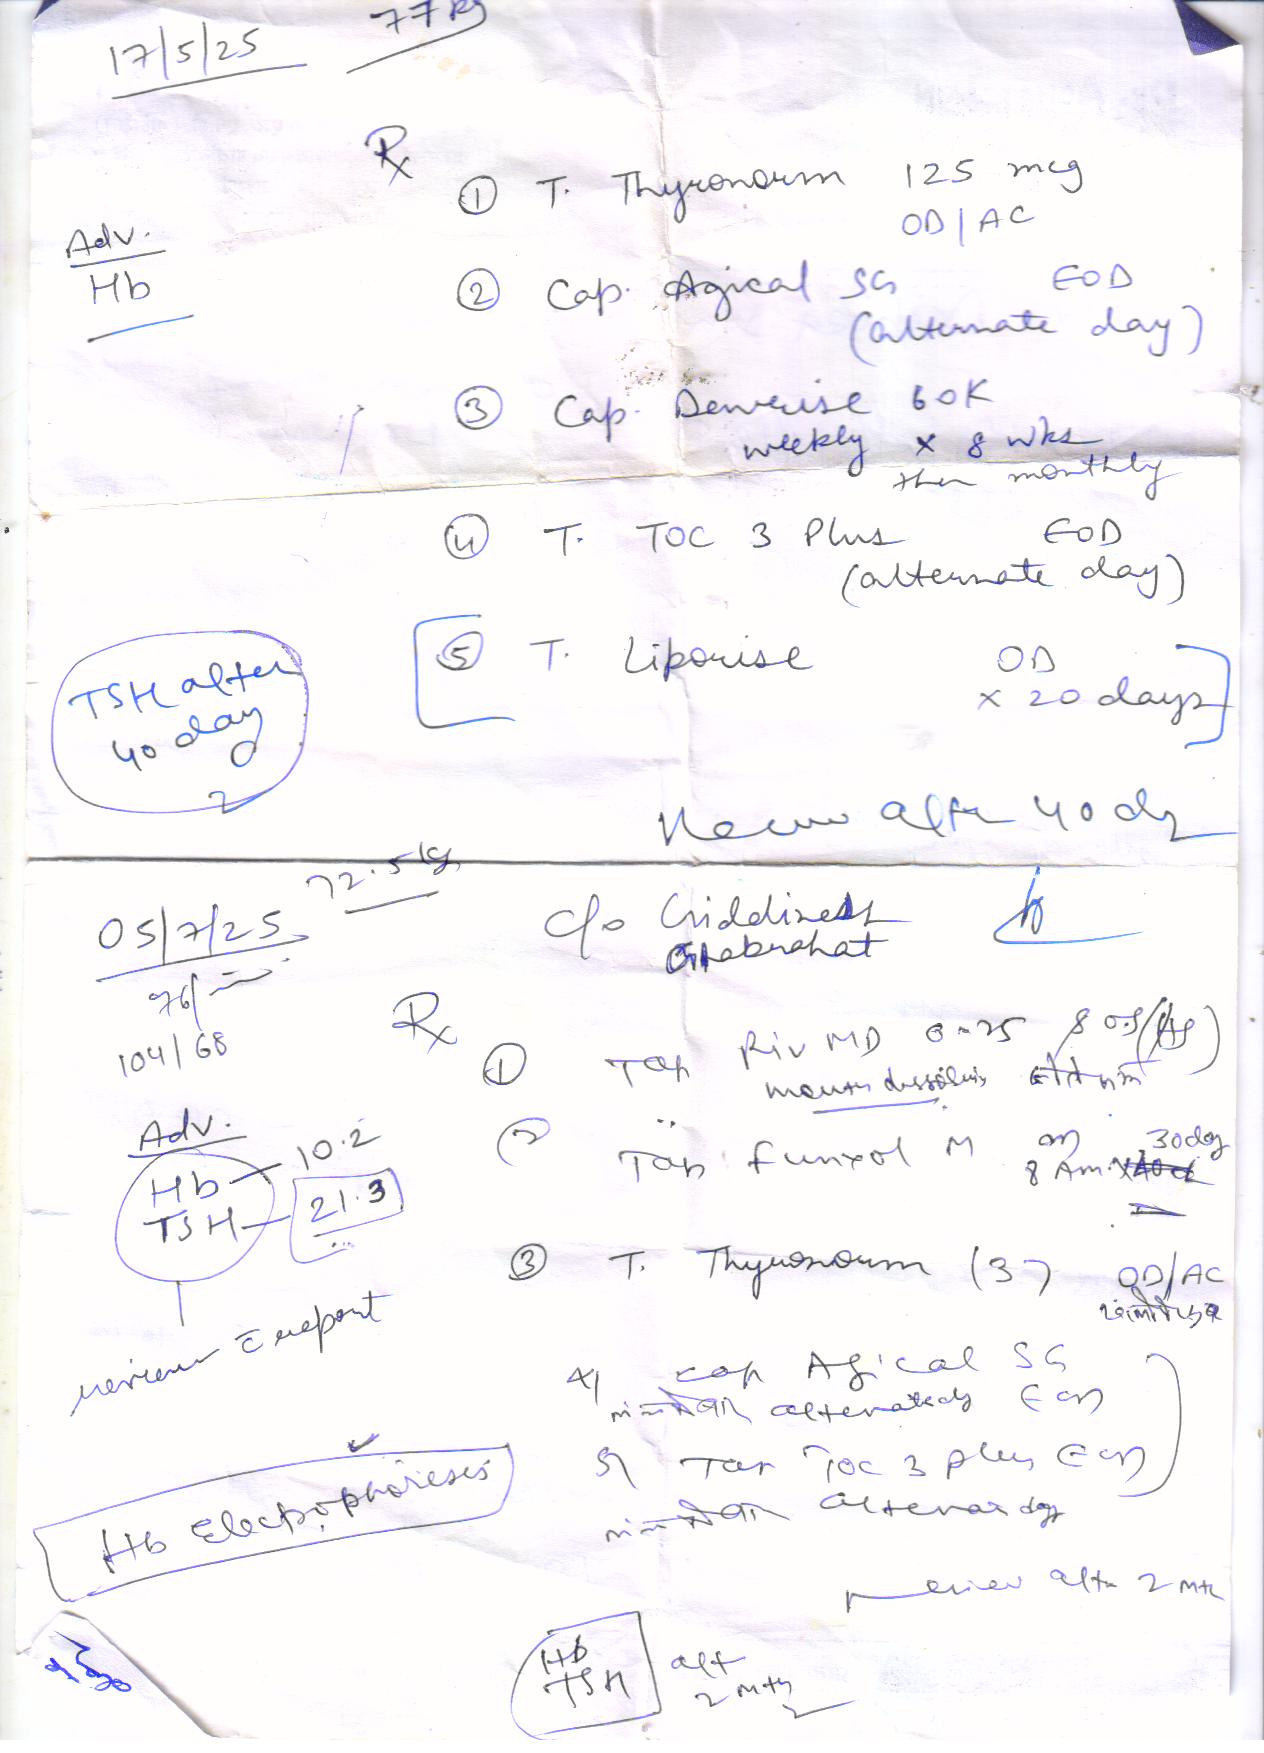 17/5/25 77 kg
Rx
① T. Thyronorm 125 mcg
OD/AC
Adv.
Hb
② Cap. Agical SG EOD
(alternate day)
③ Cap. Denvrise 60K
weekly x 8 wks
then monthly
④ T. TOC 3 Plus EOD
(alternate day)
⑤ T. Liporise OD
x 20 days
TSH after
40 day
Review after 40 dy
05/7/25 72.5 kg
c/o Giddiness
Ghabrahat
76/
104/68
Rx
① Tab Riv MD 0.25
mouth dissolving
② Tab Funxol M on 30 day
8 Am
Adv.
Hb - 10.2
TSH - 21.3
③ T. Thyronorm (137) OD/AC
review c report
4) cap Agical SG
alternate dy
5) Tab TOC 3 plus
alternate dy
Hb Electrophoresis
review aftr 2 mth
Hb
TSH
aft
2 mth